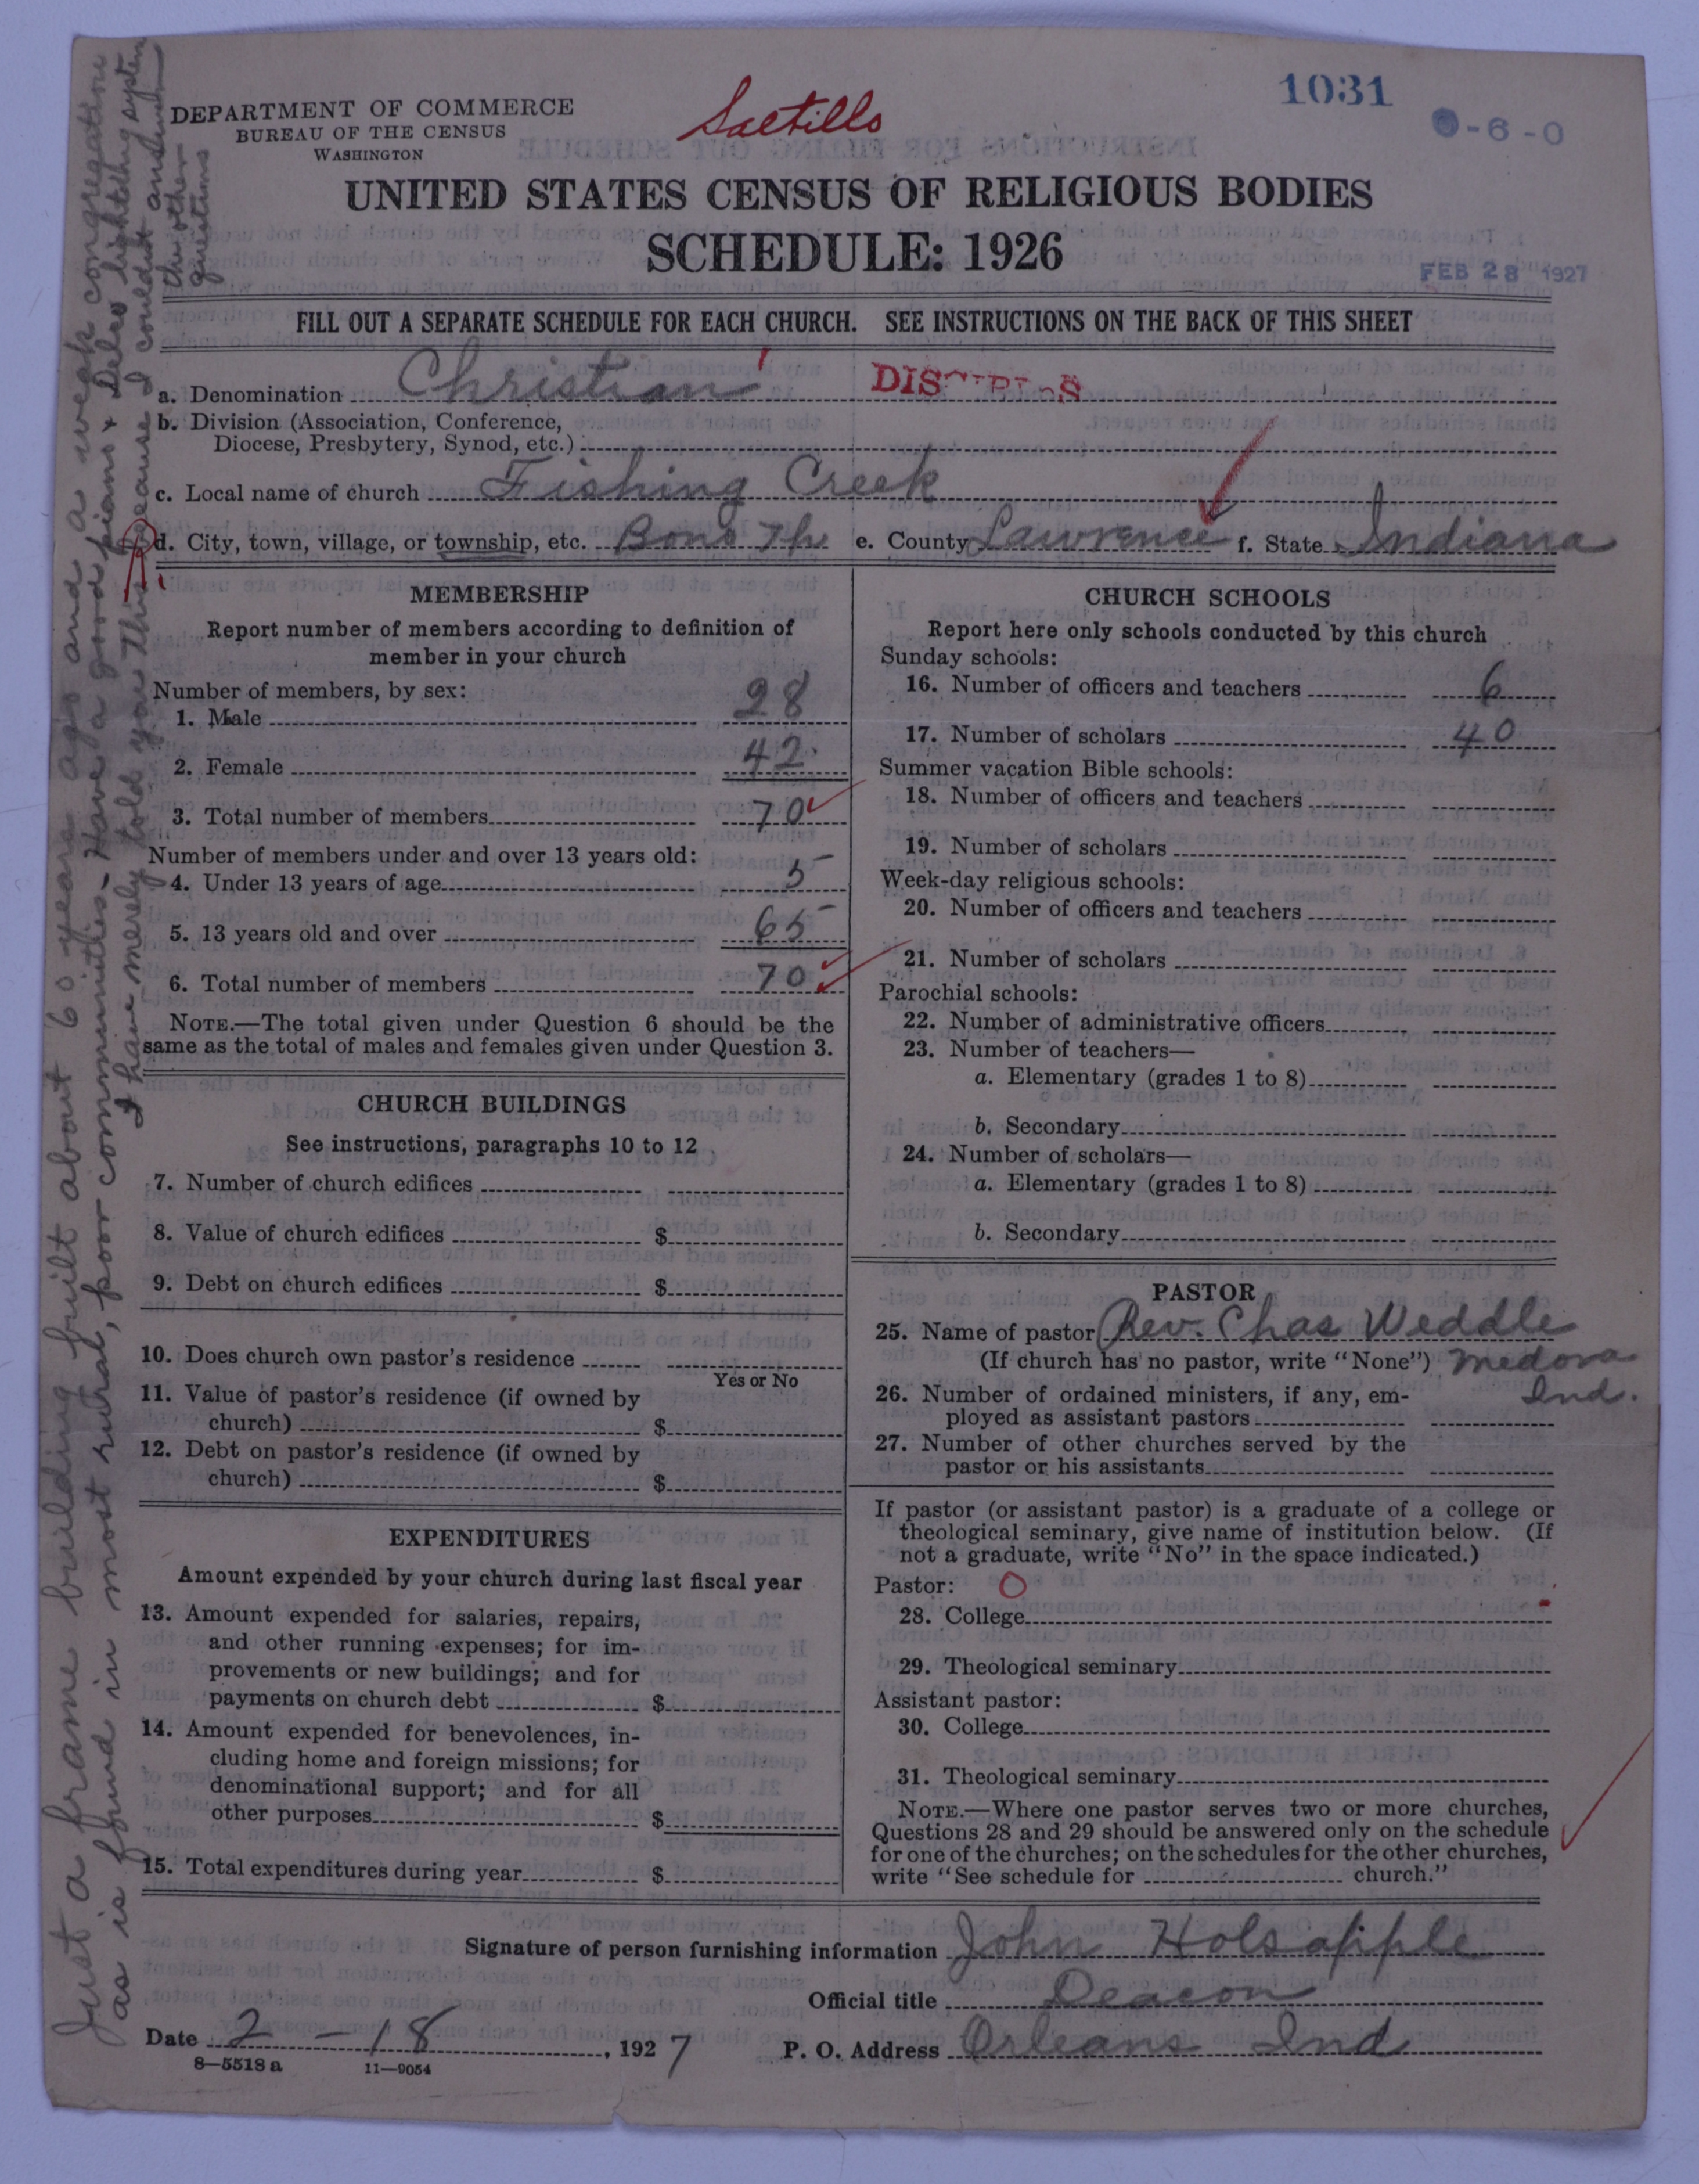 1031
DEPARTMENT OF COMMERCE
BUREAU OF THE CENSUS
WASHINGTON
Saltillo
-6-0
UNITED STATES CENSUS OF RELIGIOUS BODIES
SCHEDULE: 1926
FEB 28 1927
FILL OUT A SEPARATE SCHEDULE FOR EACH CHURCH. SEE INSTRUCTIONS ON THE BACK OF THIS SHEET
a. Denomination Christian DISCIPLES
b. Division (Association, Conference,
Diocese, Presbytery, Synod, etc.)
c. Local name of church Fishing Creek
d. City, town, village, or township, etc. Bono Tp e. County Lawrence f. State Indiana
MEMBERSHIP
Report number of members according to definition of
member in your church
Number of members, by sex:
1. Male 28
2. Female 42
3. Total number of members 70
Number of members under and over 13 years old:
4. Under 13 years of age 5
5. 13 years old and over 65
6. Total number of members 70
NOTE.—The total given under Question 6 should be the
same as the total of males and females given under Question 3.
CHURCH BUILDINGS
See instructions, paragraphs 10 to 12
7. Number of church edifices
8. Value of church edifices $
9. Debt on church edifices $
10. Does church own pastor's residence
Yes or No
11. Value of pastor's residence (if owned by
church) $
12. Debt on pastor's residence (if owned by
church) $
EXPENDITURES
Amount expended by your church during last fiscal year
13. Amount expended for salaries, repairs,
and other running expenses; for im-
provements or new buildings; and for
payments on church debt $
14. Amount expended for benevolences, in-
cluding home and foreign missions; for
denominational support; and for all
other purposes $
15. Total expenditures during year $
CHURCH SCHOOLS
Report here only schools conducted by this church
Sunday schools:
16. Number of officers and teachers 6
17. Number of scholars 40
Summer vacation Bible schools:
18. Number of officers and teachers
19. Number of scholars
Week-day religious schools:
20. Number of officers and teachers
21. Number of scholars
Parochial schools:
22. Number of administrative officers
23. Number of teachers—
a. Elementary (grades 1 to 8)
b. Secondary
24. Number of scholars—
a. Elementary (grades 1 to 8)
b. Secondary
PASTOR
25. Name of pastor Rev. Chas Weddle
(If church has no pastor, write "None") Medora
Ind.
26. Number of ordained ministers, if any, em-
ployed as assistant pastors
27. Number of other churches served by the
pastor or his assistants
If pastor (or assistant pastor) is a graduate of a college or
theological seminary, give name of institution below. (If
not a graduate, write "No" in the space indicated.)
Pastor: O
28. College
29. Theological seminary
Assistant pastor:
30. College
31. Theological seminary
NOTE.—Where one pastor serves two or more churches,
Questions 28 and 29 should be answered only on the schedule
for one of the churches; on the schedules for the other churches,
write "See schedule for church."
Signature of person furnishing information John Holsapple
Official title Deacon
Date 2-18, 1927 P. O. Address Orleans Ind
8—5518 a 11—9054
Just a frame building built about 60 years ago and a weak congregation
as is found in most rural, poor communities - Have a good piano & Delco lighting system
I have merely told you this because I couldn't answer
the other
questions